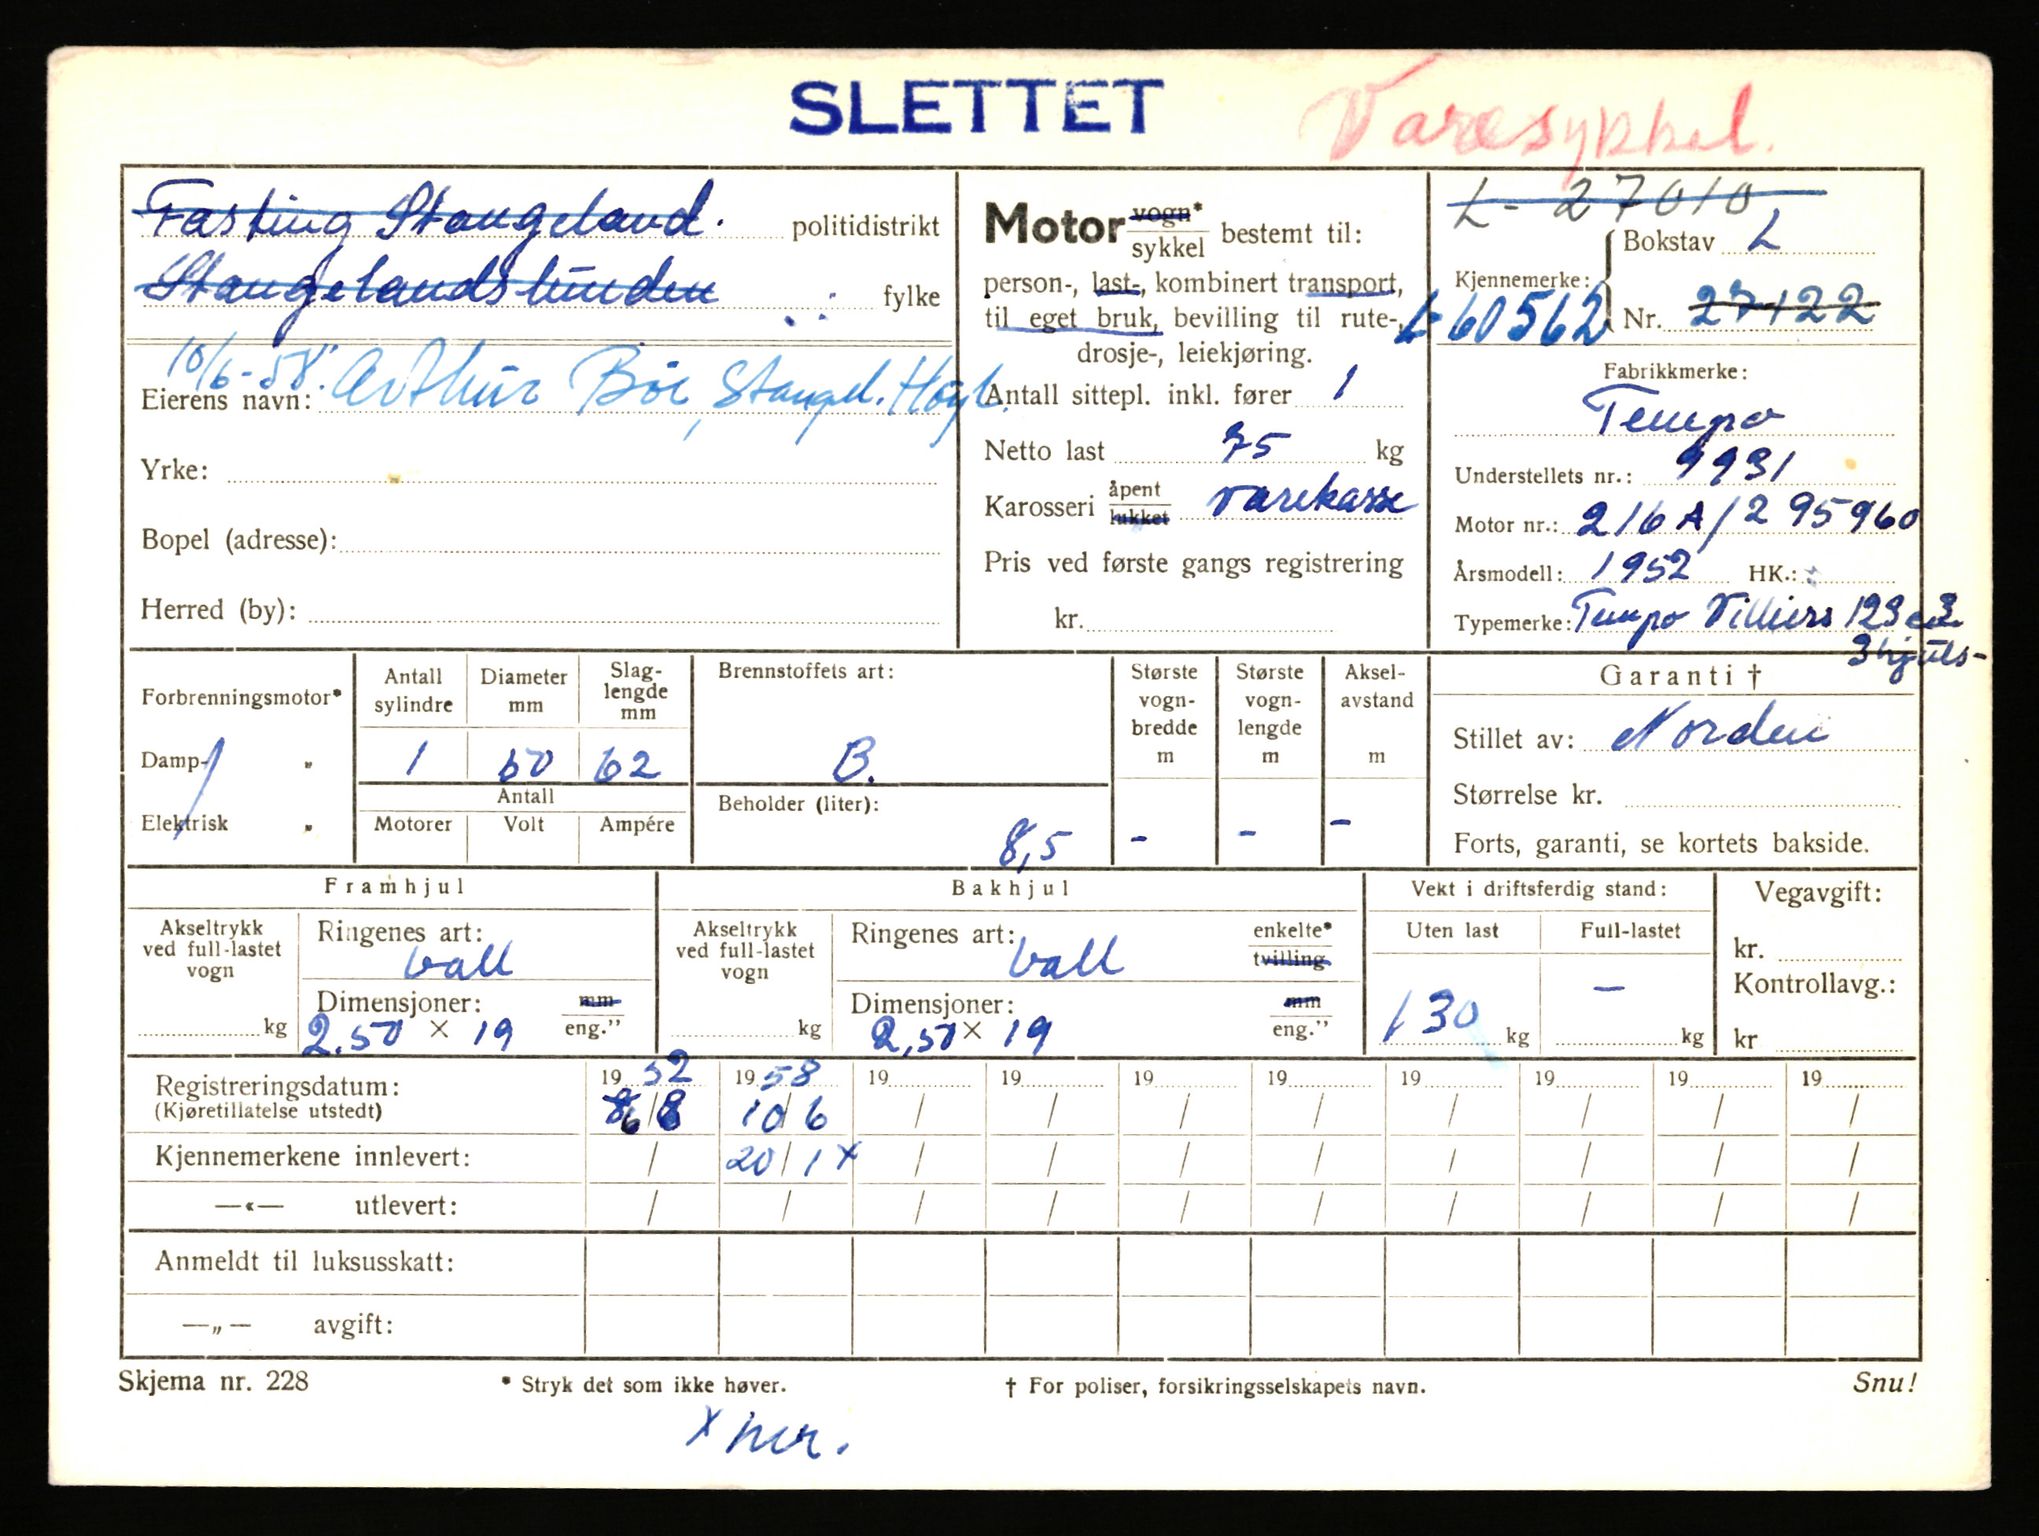 SLETTET
Varesykkel.
Fasting Stangeland. politidistrikt
Stangelandslunden fylke
10/6-58. Arthur Bøe, Stangel. Høgl.
Eierens navn:
Yrke:
Bopel (adresse):
Herred (by):
Motor vogn* sykkel bestemt til:
person-, last-, kombinert transport,
til eget bruk, bevilling til rute-,
drosje-, leiekjøring.
Antall sittepl. inkl. fører 1
Netto last 75 kg
Karosseri åpent lukket varekasse
Pris ved første gangs registrering
kr.
L- 27010
Kjennemerke: Bokstav L
L-60562 Nr. 27122
Fabrikkmerke:
Tempo
Understellets nr.: 9931
Motor nr.: 216A/295960
Årsmodell: 1952 HK.:
Typemerke: Tempo Villiers 123 cm3
3 hjuls-
Forbrenningsmotor*
Damp- „
Elektrisk „
Antall sylindre
Diameter mm
Slag-lengde mm
1 50 62
Antall
Motorer Volt Ampére
Brennstoffets art:
B.
Beholder (liter):
8,5
Største vogn-bredde m
-
Største vogn-lengde m
-
Aksel-avstand m
-
Garanti †
Stillet av: Norden
Størrelse kr.
Forts, garanti, se kortets bakside.
Framhjul
Akseltrykk ved full-lastet vogn
kg
Ringenes art:
vall
Dimensjoner: mm
2.50 × 19 eng."
Bakhjul
Akseltrykk ved full-lastet vogn
kg
Ringenes art: enkelte*
vall tvilling
Dimensjoner: mm
2,50 × 19 eng."
Vekt i driftsferdig stand:
Uten last Full-lastet
130 kg - kg
Vegavgift:
kr.
Kontrollavg.:
kr
Registreringsdatum: 19 52 19 58 19 19 19 19 19 19 19 19
(Kjøretillatelse utstedt) / 8 10/6 / / / / / / / /
Kjennemerkene innlevert: / 20/1 x / / / / / / / /
—«— utlevert: / / / / / / / / / /
Anmeldt til luksusskatt:
—„— avgift:
Skjema nr. 228 * Stryk det som ikke høver. † For poliser, forsikringsselskapets navn. Snu!